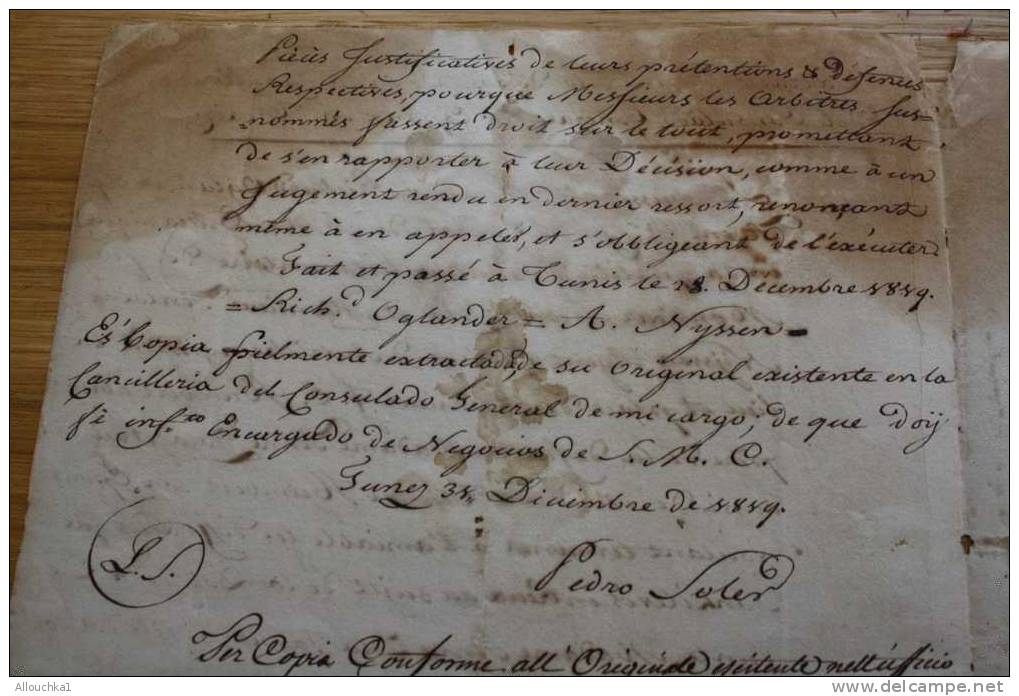 Piéces Justificatives de leurs prétentions & défences
Respectives, pourque Messieurs les Arbitres sus=
=nommés fassent droit sur le tout, promettant
de s'en rapporter à leur Décision, comme à un
Jugement rendu en dernier ressort, renonçant
même à en appeler, et s'obbligeant de l'exécuter
Fait et passé à Tunis le 28. Décembre 1819.
= Rich.d Oglander = A. Nyssen =
Es Copia fielmente extractada, de su original existente en la
Cancilleria del Consulado General de mi cargo; de que doÿ
fè inf.to Encargado de Negocios de S. M. C.
Tunez 31. Diciembre de 1819.
L.S.
Pedro Soler
Per Copia Conforme all' Originale esistente nell'ufficio
Allouchka1
www.delcampe.net